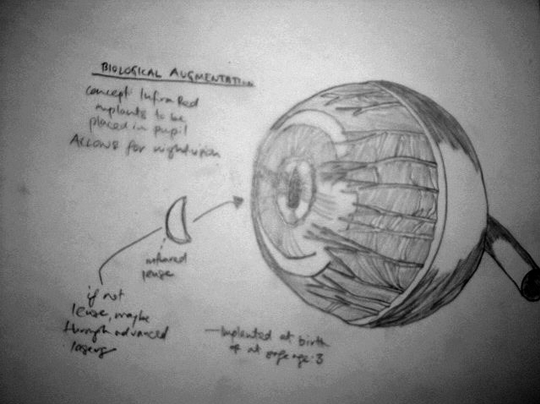 BIOLOGICAL AUGMENTATION
concept: InfraRed
implants to be
placed in pupil
ALLOWS for nightvision
infrared
lense
if not
lense, maybe
through advanced
lasers
— Implented at birth
at age: 3